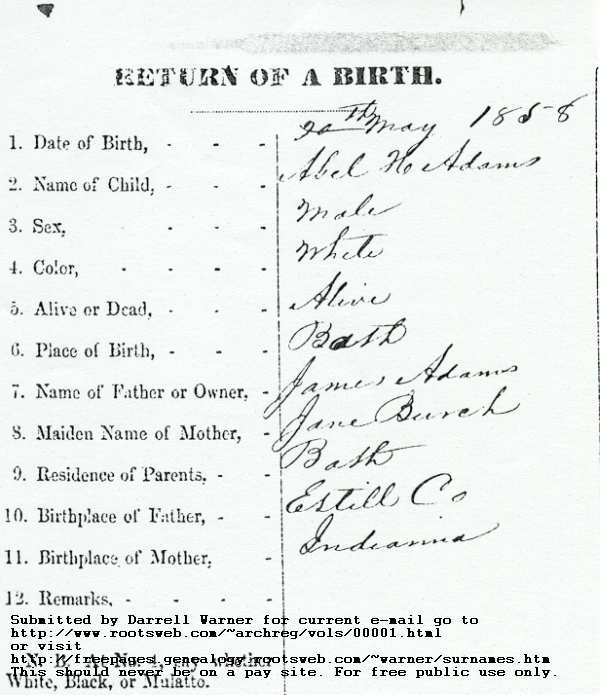 RETURN OF A BIRTH.
1. Date of Birth, - - - 20th May 1858
2. Name of Child, - - - Abel H Adams
3. Sex, - - - - Male
4. Color, - - - - White
5. Alive or Dead, - - - Alive
6. Place of Birth, - - - Bath
7. Name of Father or Owner, - James Adams
8. Maiden Name of Mother, - Jane Burch
9. Residence of Parents, - - Bath
10. Birthplace of Father, - - Estill Co
11. Birthplace of Mother, - Indeannia
12. Remarks, - - - -
Submitted by Darrell Warner for current e-mail go to
http://www.rootsweb.com/~archreg/vols/00001.html
or visit
N. B. At No. 4, say whether
http://freepages.genealogy.rootsweb.com/~warner/surnames.htm
This should never be on a pay site. For free public use only.
White, Black, or Mulatto.